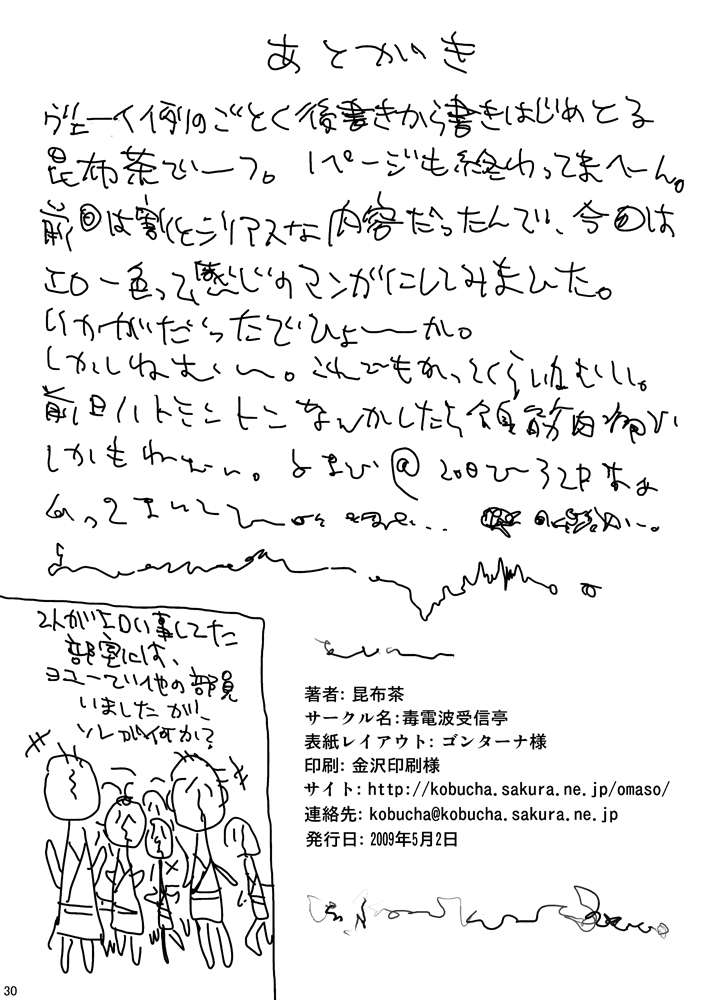 あとがき
ヴェーイ例のごとく後書きから書きはじめとる
昆布茶でーつ。1ページも終わってまへーん。
前回は割とシリアスな内容だったんで、今回は
エロ一色って感じのマンガにしてみまひた。
いかがだったでひょーーか。
しかしねむい〜。これでもかってくらいねむいい。
前日バトミントンなんかしたら全身筋肉痛でい
しかもねむい。
2人がエロい事してた
部室には、
ヨユーで他の部員
いましたが、
ソレが何か?
著者: 昆布茶
サークル名:毒電波受信亭
表紙レイアウト: ゴンターナ様
印刷: 金沢印刷様
サイト: http://kobucha.sakura.ne.jp/omaso/
連絡先: kobucha@kobucha.sakura.ne.jp
発行日: 2009年5月2日
30